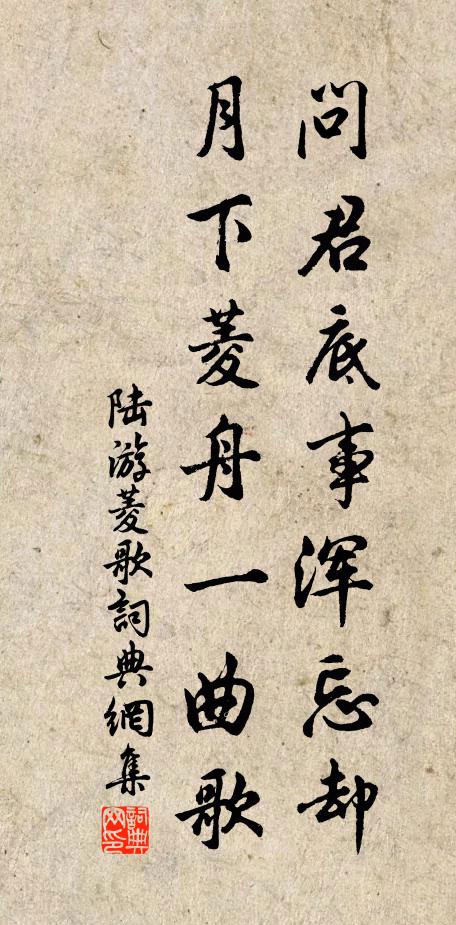 问君底事浑忘却
月下菱舟一曲歌
陆游菱歌詞典網集
詞典
网印